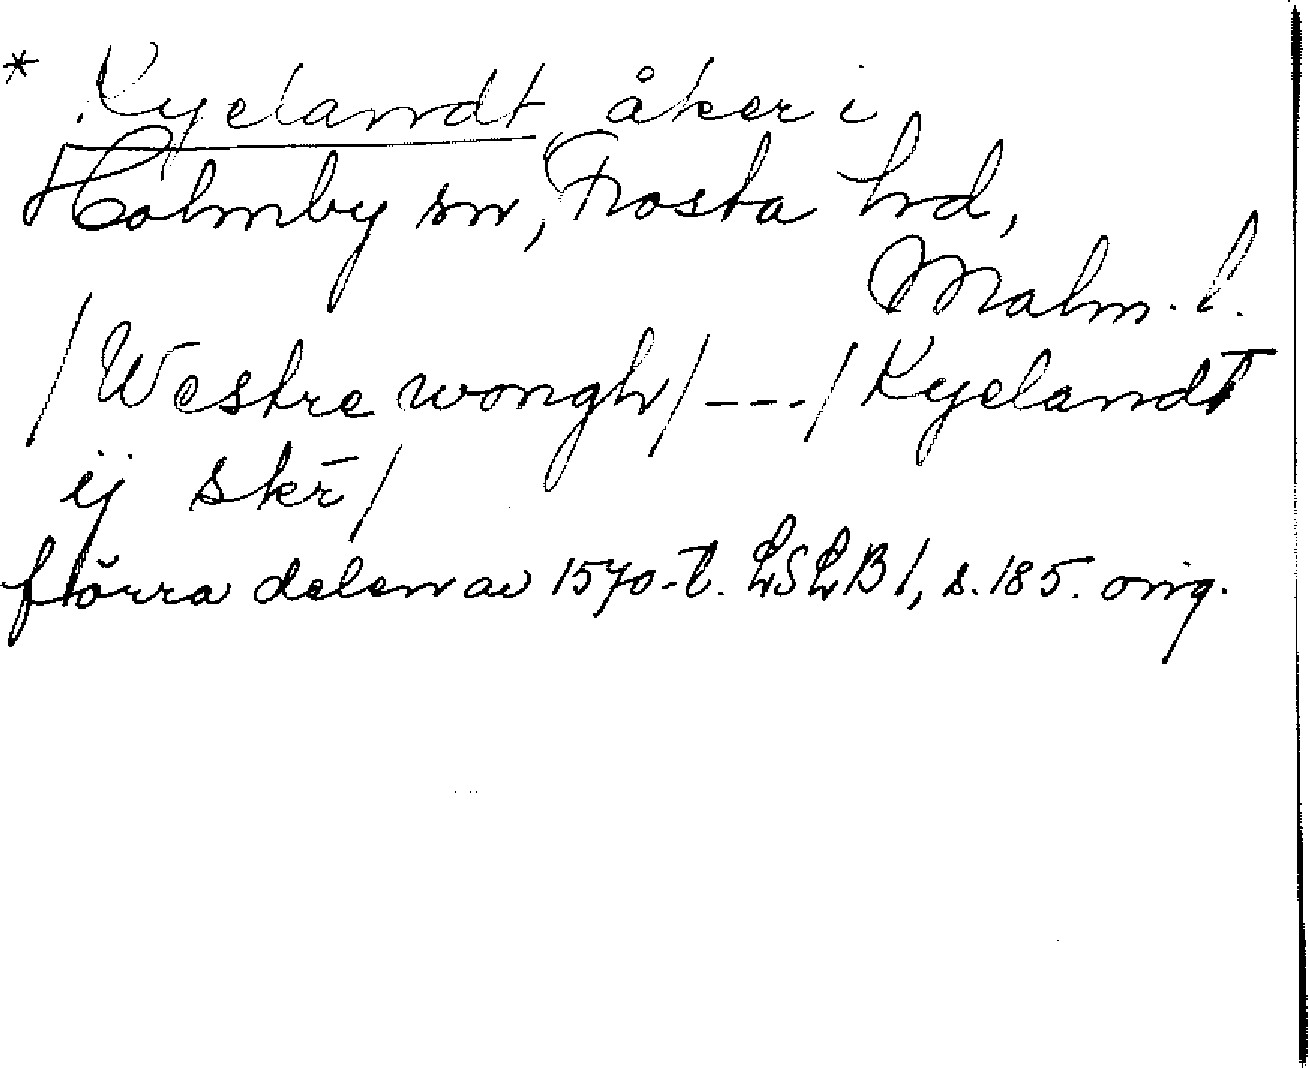 * Kyelandt, åker i
Holmby sn, Frosta hd,
Malm. l.
/Westre wongh/ --- / Kyelandt
ij skr̄ /
förra delen av 1570-t. LSLB 1, s. 185. orig.